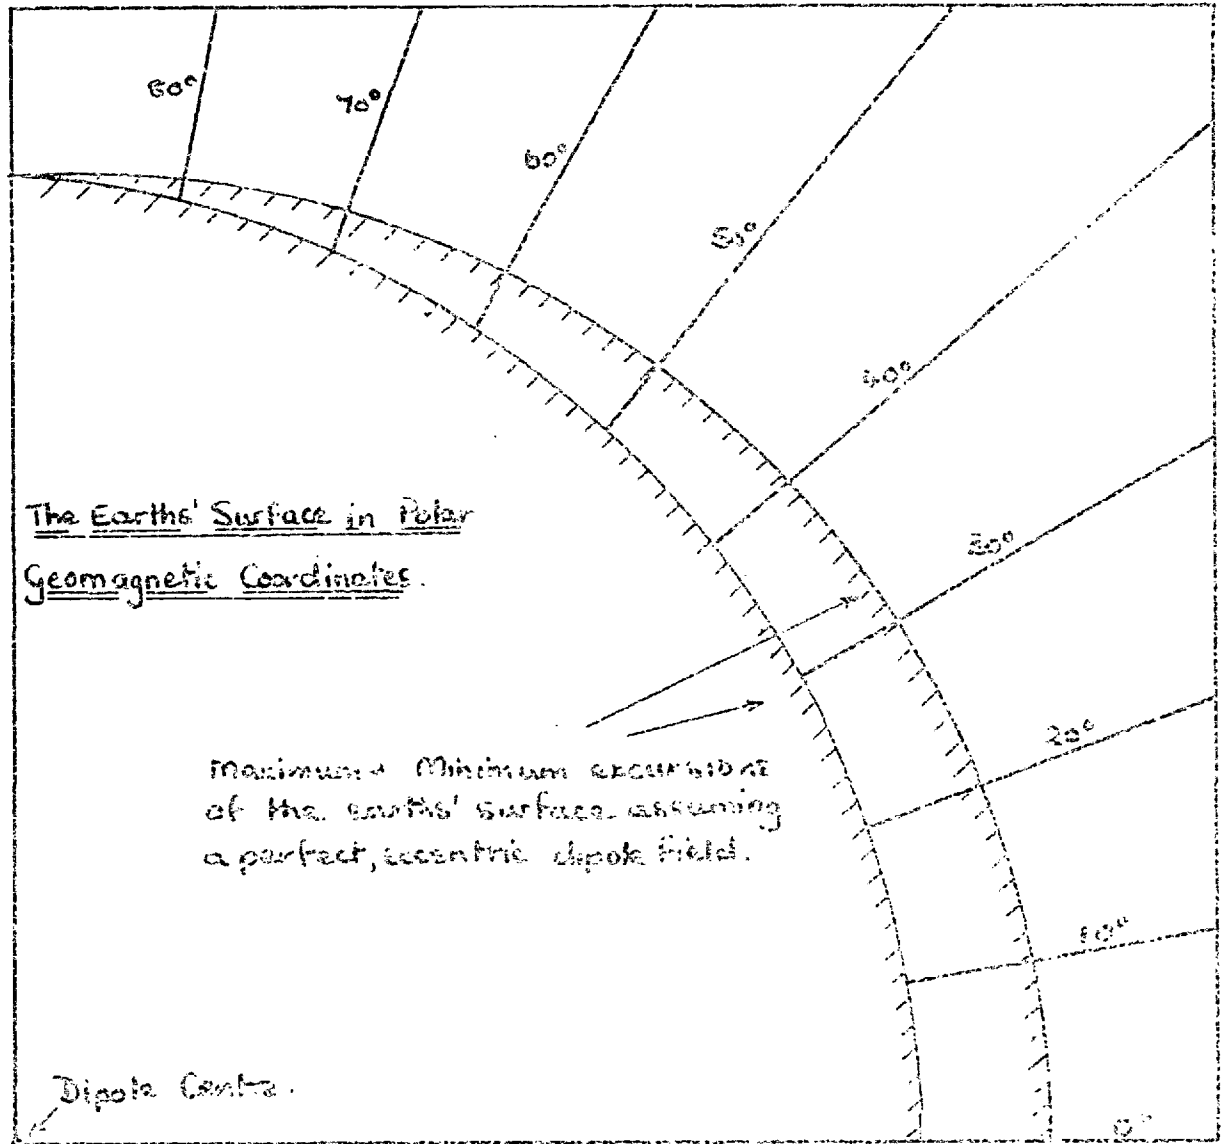 80°
70°
60°
50°
40°
30°
20°
10°
0°
The Earths' Surface in Polar
Geomagnetic Coordinates.
Maximum + Minimum excursions
of the earths' surface assuming
a perfect, eccentric dipole field.
Dipole Centre.